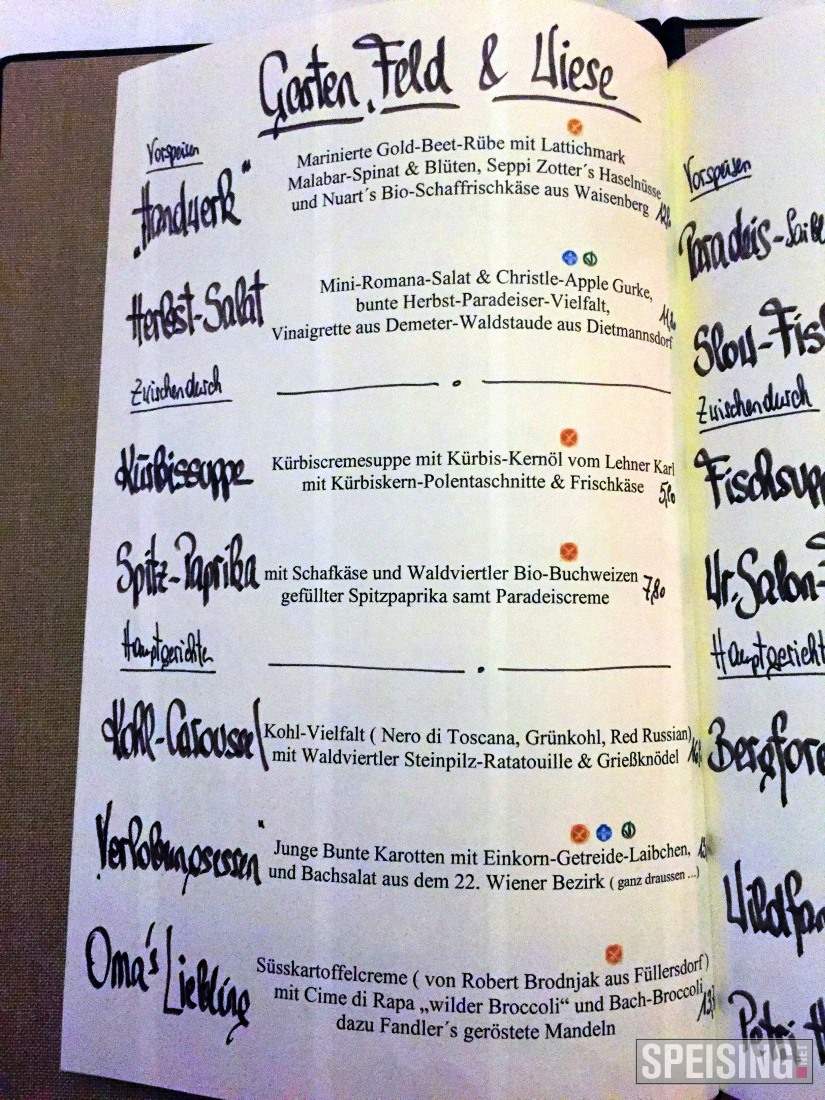 Garten, Feld & Wiese
Vorspeisen
„Handwerk“
Marinierte Gold-Beet-Rübe mit Lattichmark
Malabar-Spinat & Blüten, Seppi Zotter´s Haselnüsse
und Nuart´s Bio-Schaffrischkäse aus Waisenberg
Herbst-Salat
Mini-Romana-Salat & Christle-Apple Gurke,
bunte Herbst-Paradeiser-Vielfalt,
Vinaigrette aus Demeter-Waldstaude aus Dietmannsdorf
Zwischendurch
Kürbissuppe
Kürbiscremesuppe mit Kürbis-Kernöl vom Lehner Karl
mit Kürbiskern-Polentaschnitte & Frischkäse
Spitz-Paprika
mit Schafkäse und Waldviertler Bio-Buchweizen 7,80
gefüllter Spitzpaprika samt Paradeiscreme
Hauptgerichte
Kohl-Caroussel
Kohl-Vielfalt ( Nero di Toscana, Grünkohl, Red Russian)
mit Waldviertler Steinpilz-Ratatouille & Grießknödel
„Verlobungsessen“
Junge Bunte Karotten mit Einkorn-Getreide-Laibchen,
und Bachsalat aus dem 22. Wiener Bezirk ( ganz draussen ...)
Oma's Liebling
Süsskartoffelcreme ( von Robert Brodnjak aus Füllersdorf )
mit Cime di Rapa „wilder Broccoli“ und Bach-Broccoli,
dazu Fandler´s geröstete Mandeln
Vorspeisen
Paradeis-Saibl
Slow-Fis
Zwischendurch
Fischsupp
Ur-Salon-
Hauptgericht
Bergfore
Wildfan
Petri H
SPEISING.NET